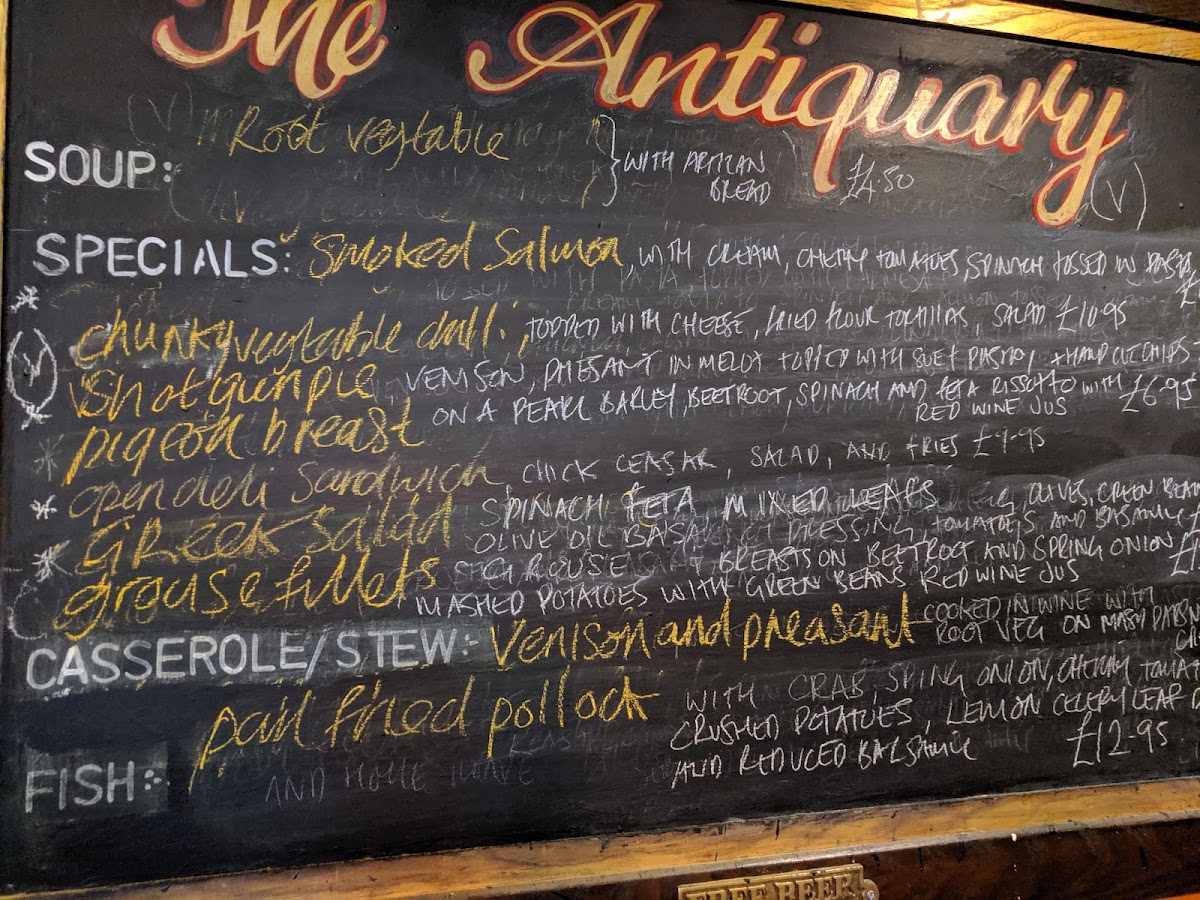 The Antiquary
SOUP: Root vegtable } WITH ARTISAN BREAD £4.50 (V)
SPECIALS: Smoked Salmon WITH CREAM, CHERRY TOMATOES, SPINACH TOSSED IN PASTA
chunky vegtable chilli, TOPPED WITH CHEESE, FRIED FLOUR TORTILLAS, SALAD £10.95
(V) Shotgun pie VENISON, PHESANT IN MELOT TOPPED WITH SUET PASTRY, + HAND CUT CHIPS
pigeon breast ON A PEARL BARLEY, BEETROOT, SPINACH AND FETA RISSOTTO WITH £6.95
RED WINE JUS
open deli Sandwich, CHICK CEASAR, SALAD, AND FRIES £9.95
GReek Salad SPINACH FETA MIXED LEAFS OLIVES, GREEN BEANS
OLIVE OIL BALSAMIC DRESSING, TOMATOES AND BALSAMIC
grouse fillets GROUSE BREASTS ON BEETROOT AND SPRING ONION
MASHED POTATOES WITH GREEN BEANS RED WINE JUS
CASSEROLE/STEW: Venison and pheasant COOKED IN WINE WITH
ROOT VEG ON MASH
pan fried pollock WITH CRAB, SPING ONION, CHERRY TOMATO
CRUSHED POTATOES, LEMON CELERY LEAF
FISH: AND REDUCED BALSAMIC £12.95
AND HOME MADE
FREE BEER